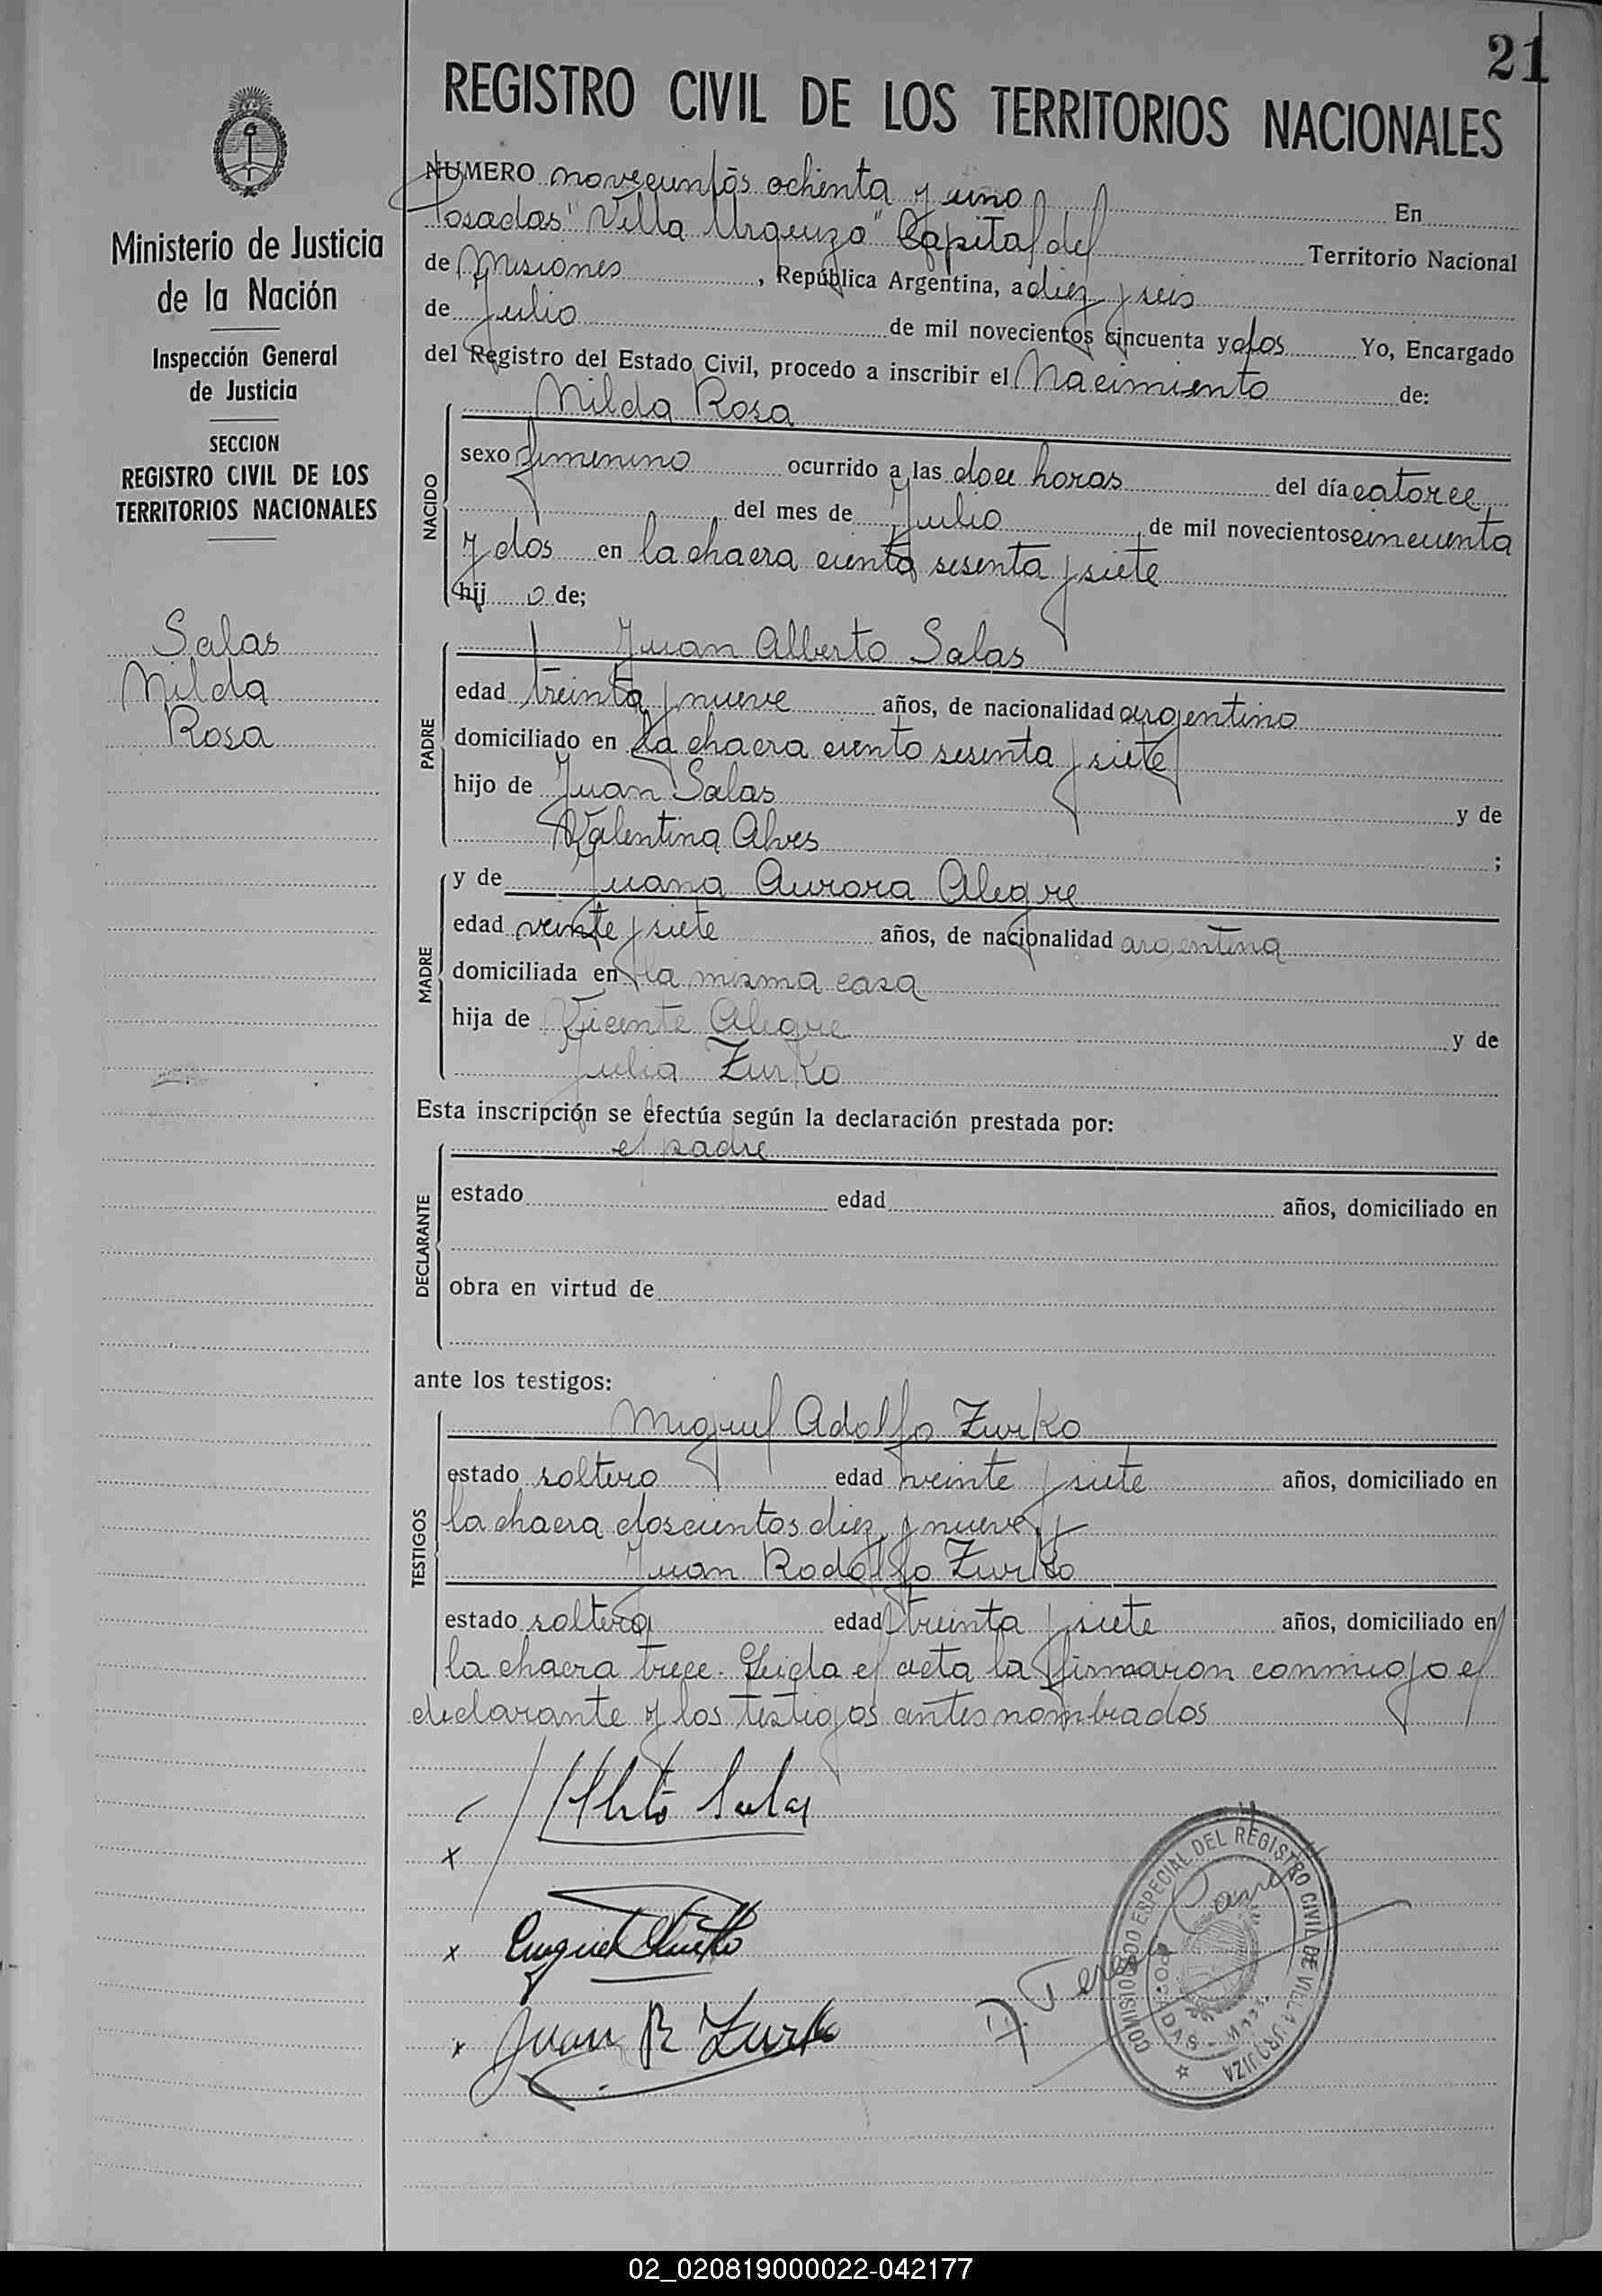 21
REGISTRO CIVIL DE LOS TERRITORIOS NACIONALES
Ministerio de Justicia
de la Nación
Inspección General
de Justicia
SECCION
REGISTRO CIVIL DE LOS
TERRITORIOS NACIONALES
Salas
Nilda
Rosa
NUMERO novecientos ochenta y uno En
Posadas "Villa Urquiza" Capital del Territorio Nacional
de Misiones, República Argentina, a diez y seis
de Julio de mil novecientos cincuenta y dos Yo, Encargado
del Registro del Estado Civil, procedo a inscribir el Nacimiento de:
NACIDO
Nilda Rosa
sexo femenino ocurrido a las doce horas del día catorce
del mes de Julio de mil novecientos cincuenta
y dos en la chacra ciento sesenta y siete
hij a de;
PADRE
Juan Alberto Salas
edad treinta y nueve años, de nacionalidad argentino
domiciliado en la chacra ciento sesenta y siete
hijo de Juan Salas y de
Valentina Alves ;
MADRE
y de Juana Aurora Alegre
edad veinte y siete años, de nacionalidad argentina
domiciliada en la misma casa
hija de Vicente Alegre y de
Julia Zurko
Esta inscripción se efectúa según la declaración prestada por:
DECLARANTE
el padre
estado edad años, domiciliado en
obra en virtud de
ante los testigos:
TESTIGOS
Miguel Adolfo Zurko
estado soltero edad veinte y siete años, domiciliado en
la chacra doscientos diez y nueve y
Juan Rodolfo Zurko
estado soltero edad treinta y siete años, domiciliado en
la chacra trece. Leida el acta la firmaron conmigo el
declarante y los testigos antes nombrados
Salas
Juan R Zurko
Teresa
COMISIONADO ESPECIAL DEL REGISTRO CIVIL DE VILLA URQUIZA
POSADAS
02_020819000022-042177